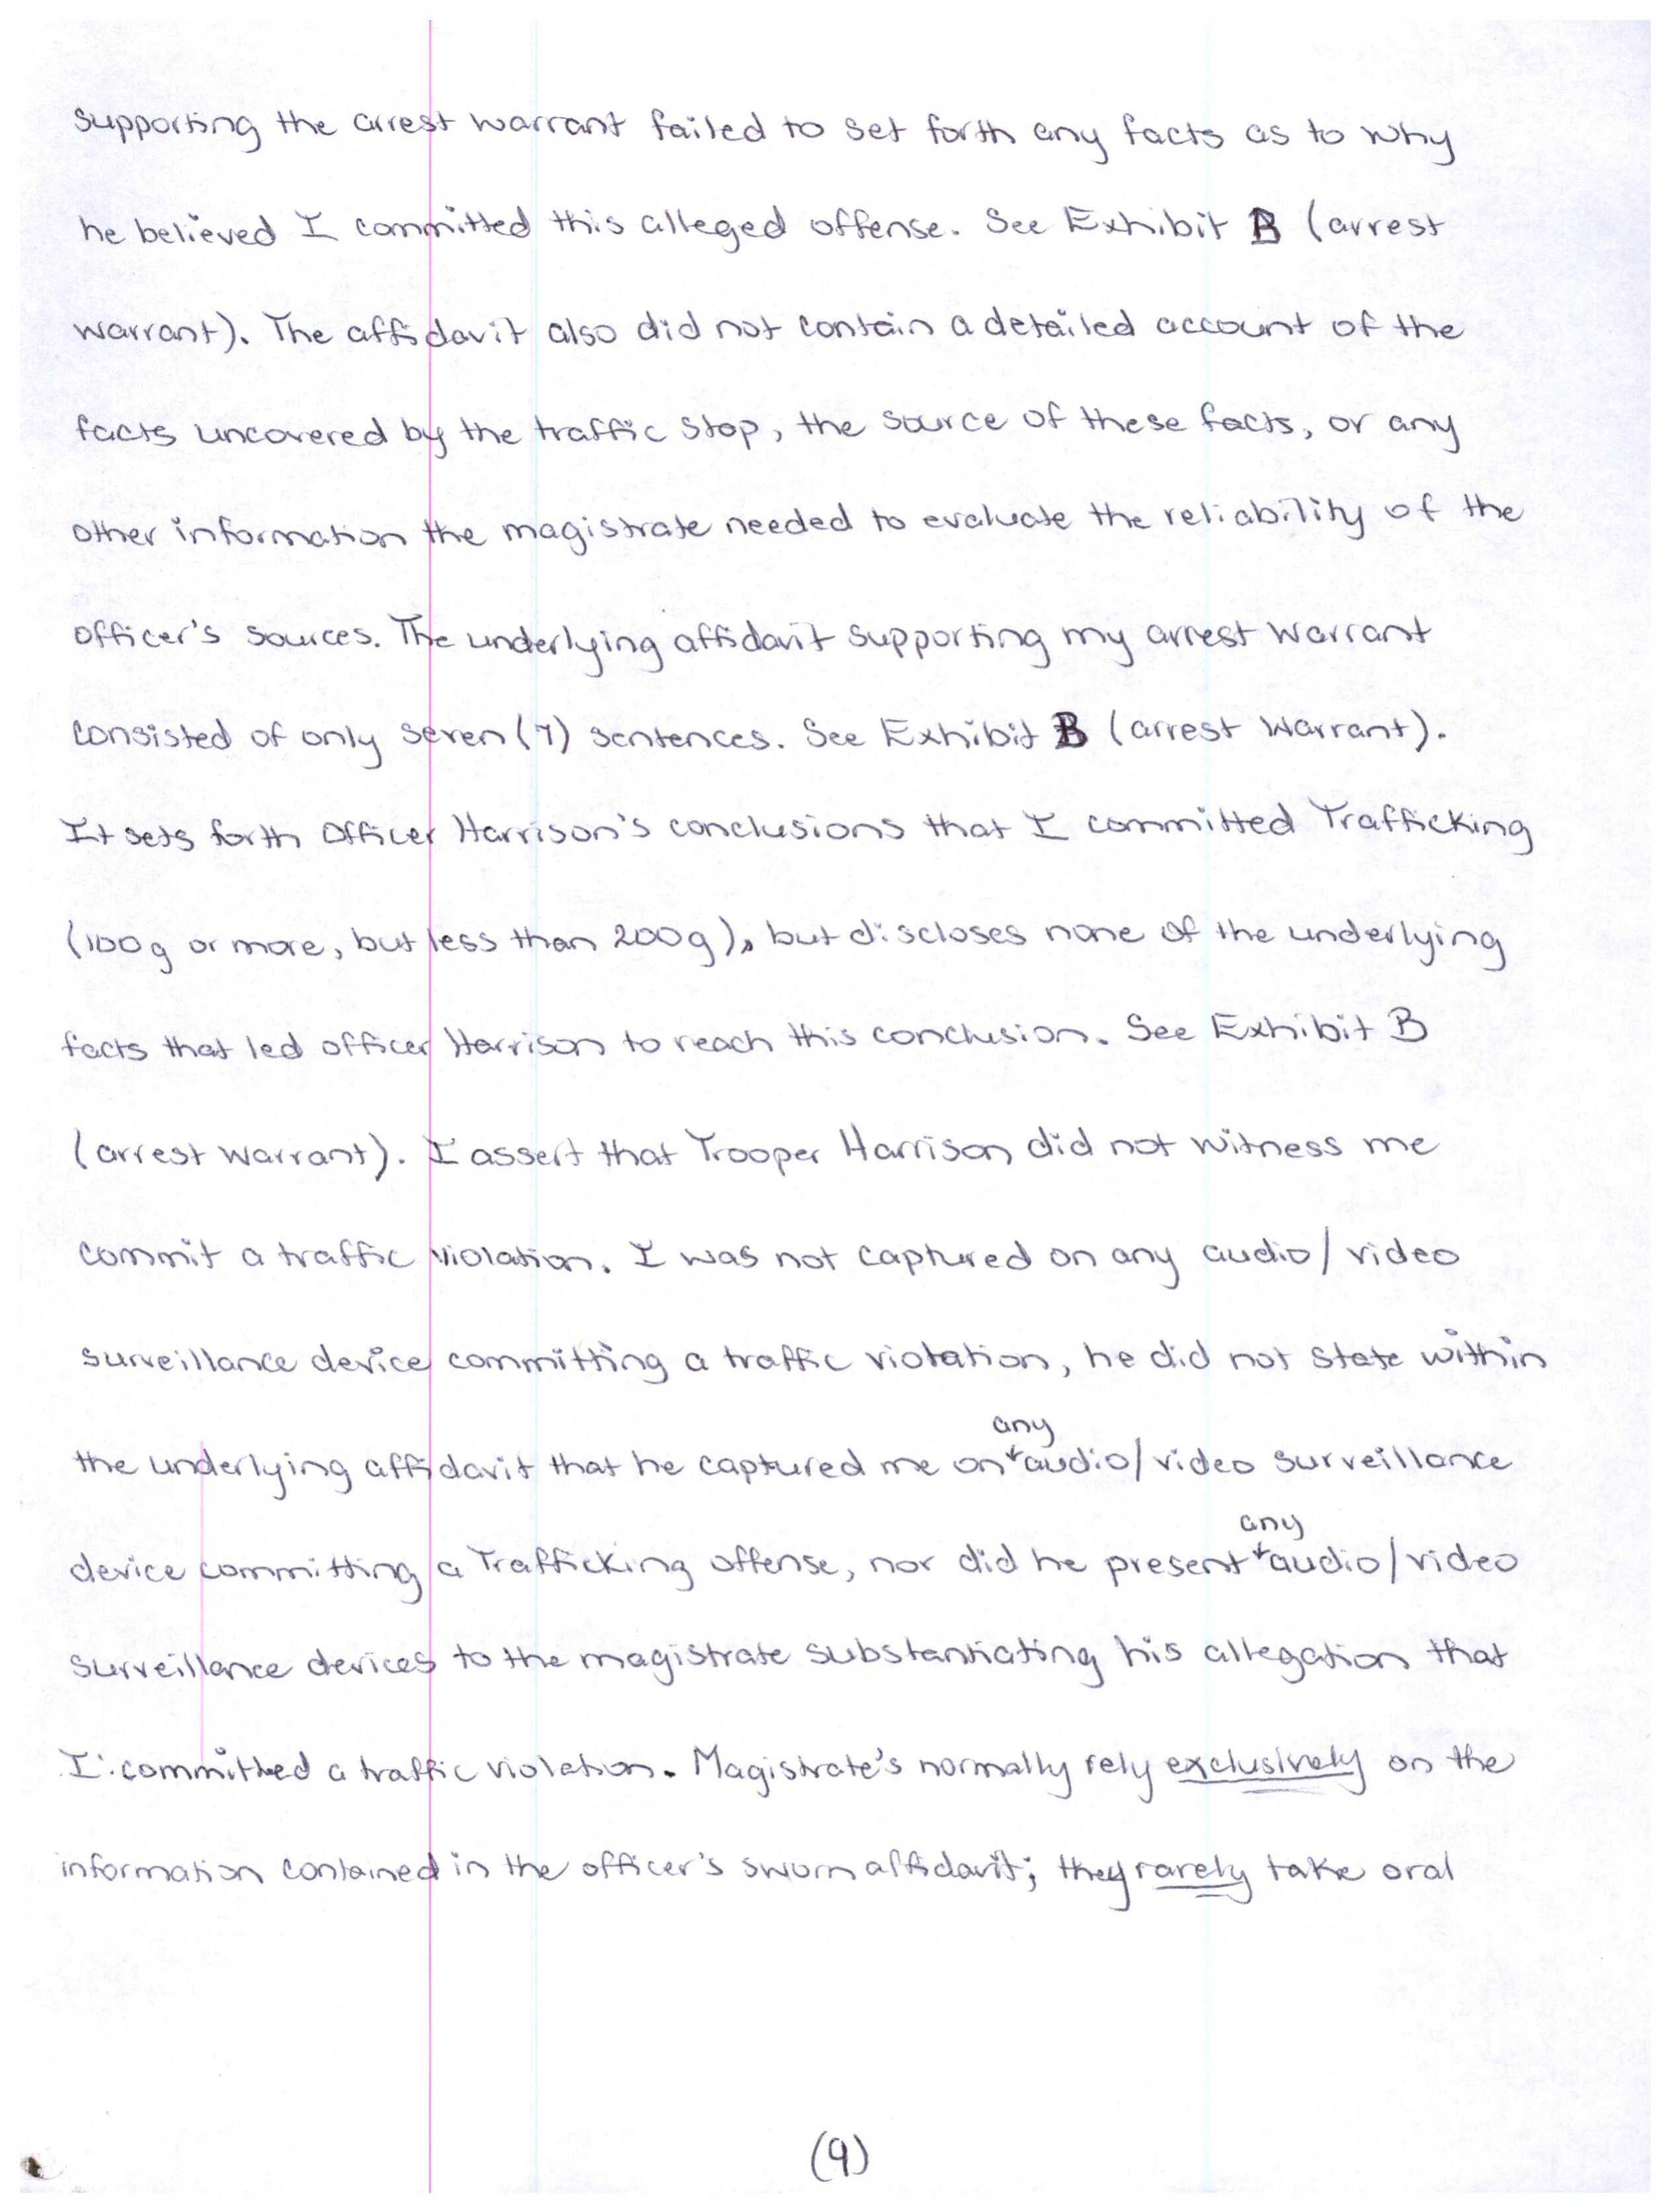 supporting the arrest warrant failed to set forth any facts as to why
he believed I committed this alleged offense. See Exhibit B (arrest
warrant). The affidavit also did not contain a detailed account of the
facts uncovered by the traffic stop, the source of these facts, or any
other information the magistrate needed to evaluate the reliability of the
officer's sources. The underlying affidavit supporting my arrest warrant
consisted of only seven (7) sentences. See Exhibit B (arrest warrant).
It sets forth Officer Harrison's conclusions that I committed Trafficking
(100g or more, but less than 200g), but discloses none of the underlying
facts that led officer Harrison to reach this conclusion. See Exhibit B
(arrest warrant). I assert that Trooper Harrison did not witness me
commit a traffic violation. I was not captured on any audio/video
surveillance device committing a traffic violation, he did not state within
any
the underlying affidavit that he captured me on audio/video surveillance
any
device committing a Trafficking offense, nor did he present audio/video
surveillance devices to the magistrate substantiating his allegation that
I committed a traffic violation. Magistrate's normally rely exclusively on the
information contained in the officer's sworn affidavit; they rarely take oral
(9)